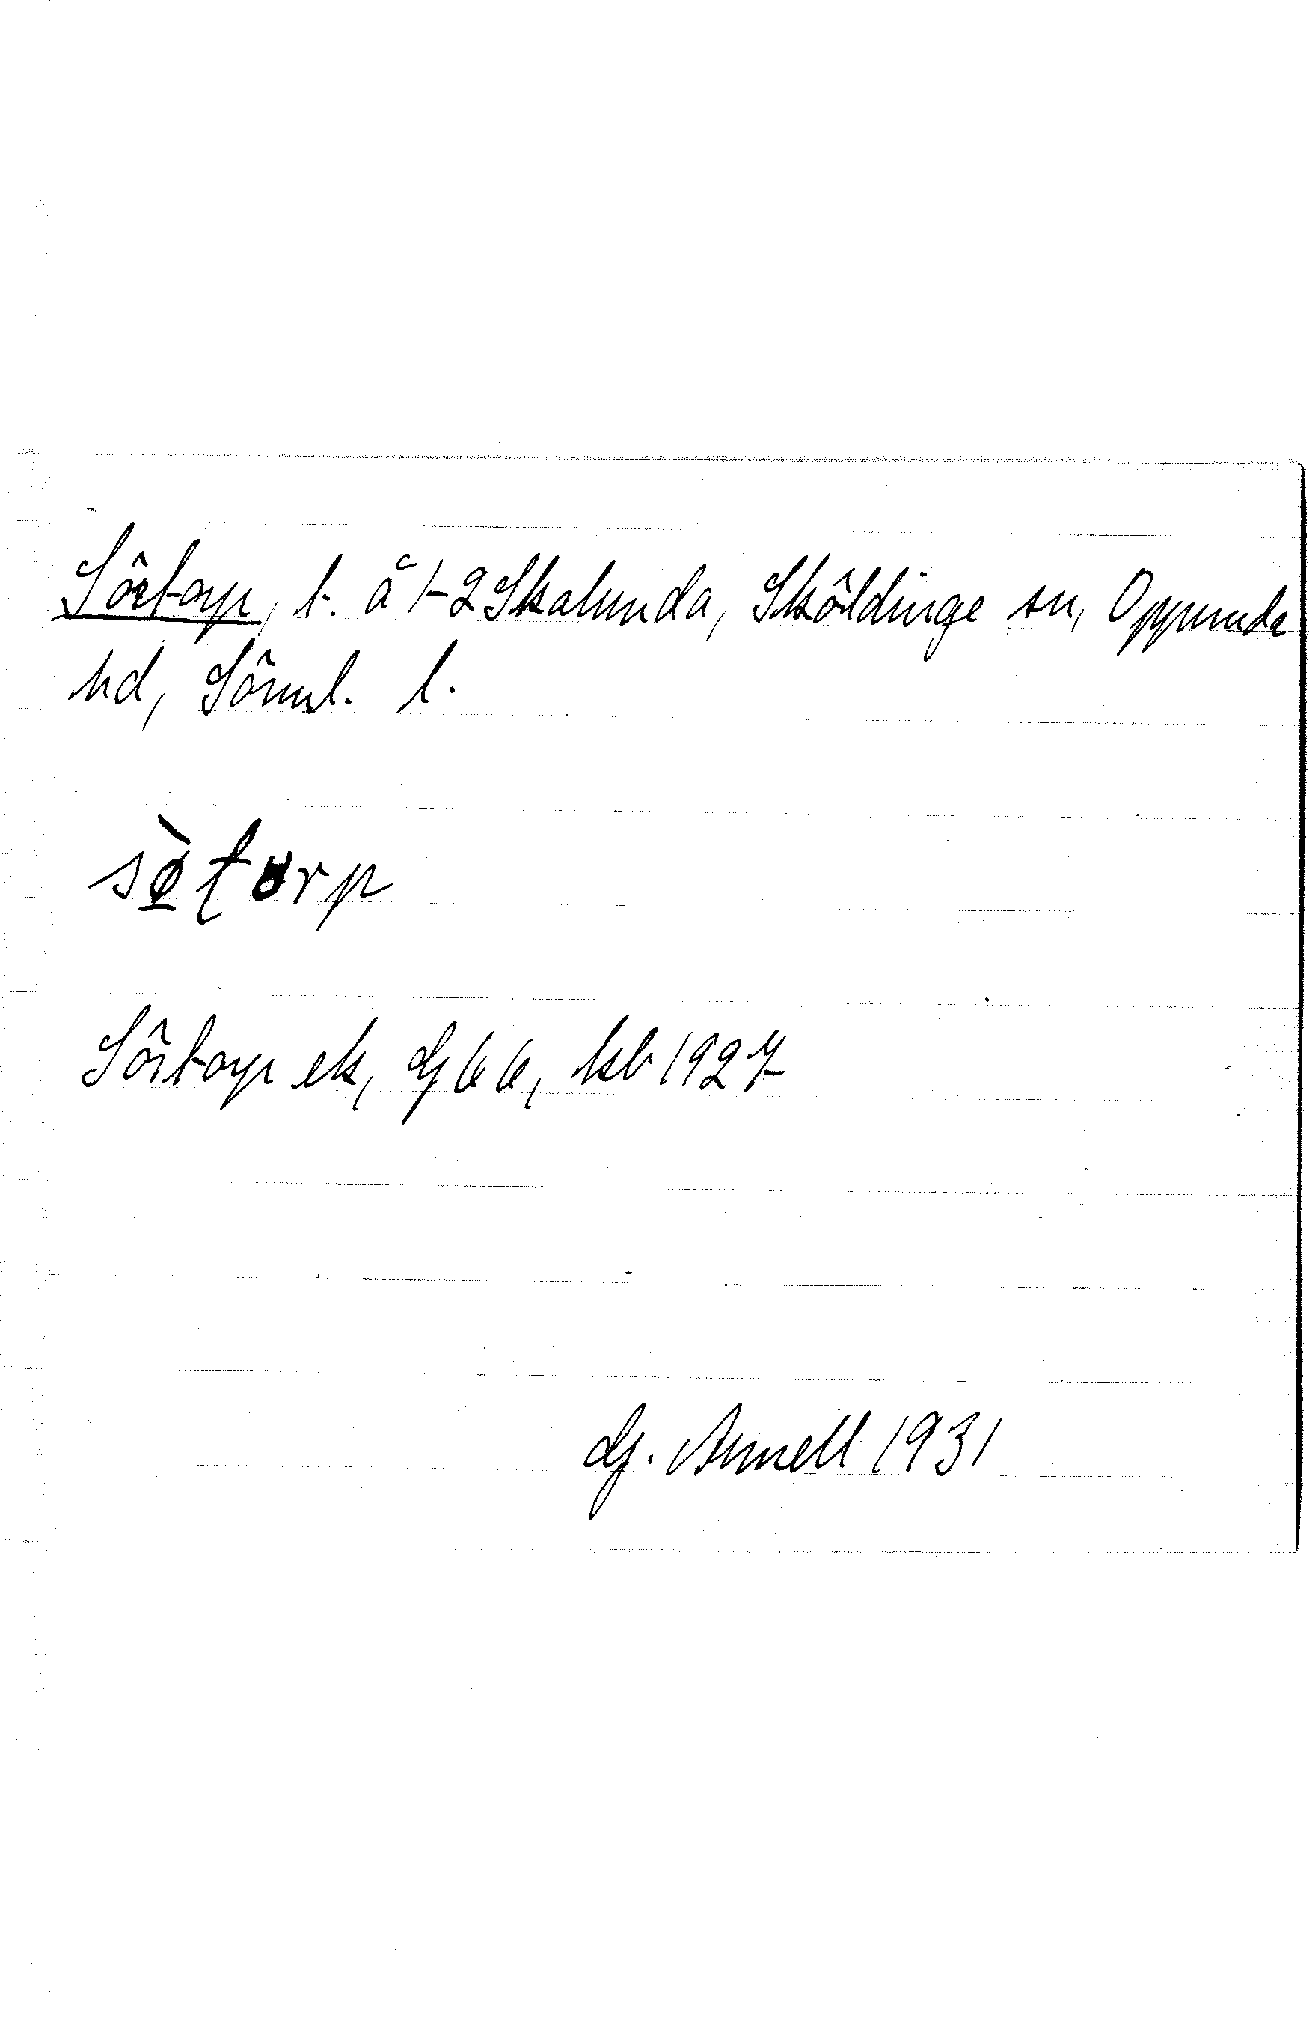 Sörtorp, t. å 1-2 Skalunda, Sköldinge sn, Oppunda
hd, Sörml. l.
sø̀torp
Sörtorp ek, Gj 66, kb 1927
Gj. Annell 1931